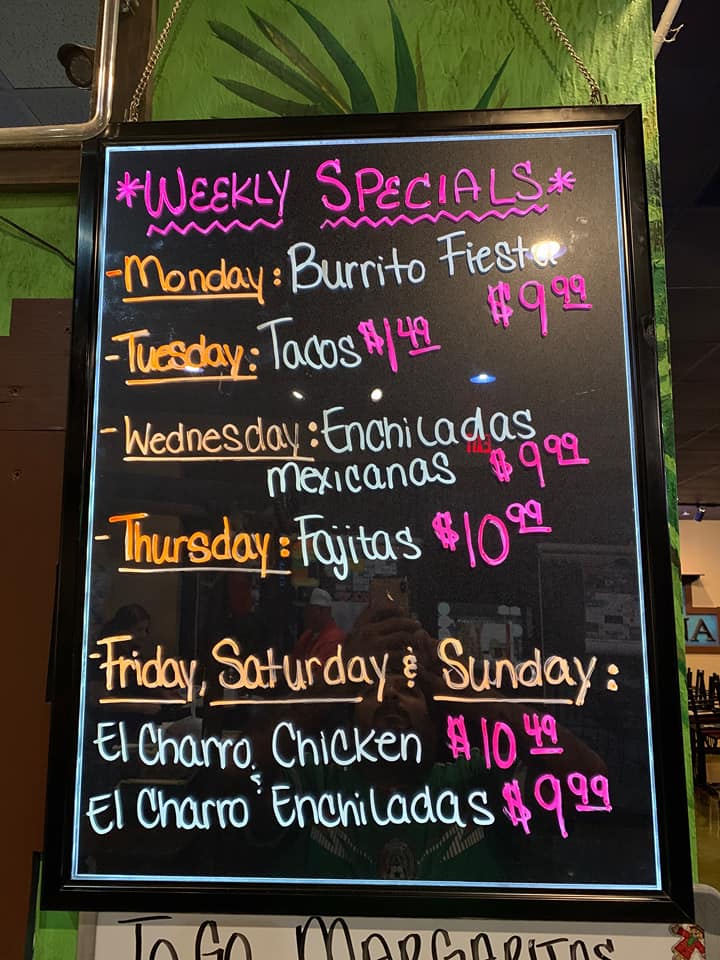 *WEEKLY SPECIALS*
-Monday: Burrito Fiesta
$9.99
-Tuesday: Tacos $1.49
-Wednesday: Enchiladas
mexicanas $9.99
-Thursday: Fajitas $10.99
-Friday, Saturday & Sunday:
El Charro Chicken $10.49
&
El Charro Enchiladas $9.99
TO GO MARGARITAS